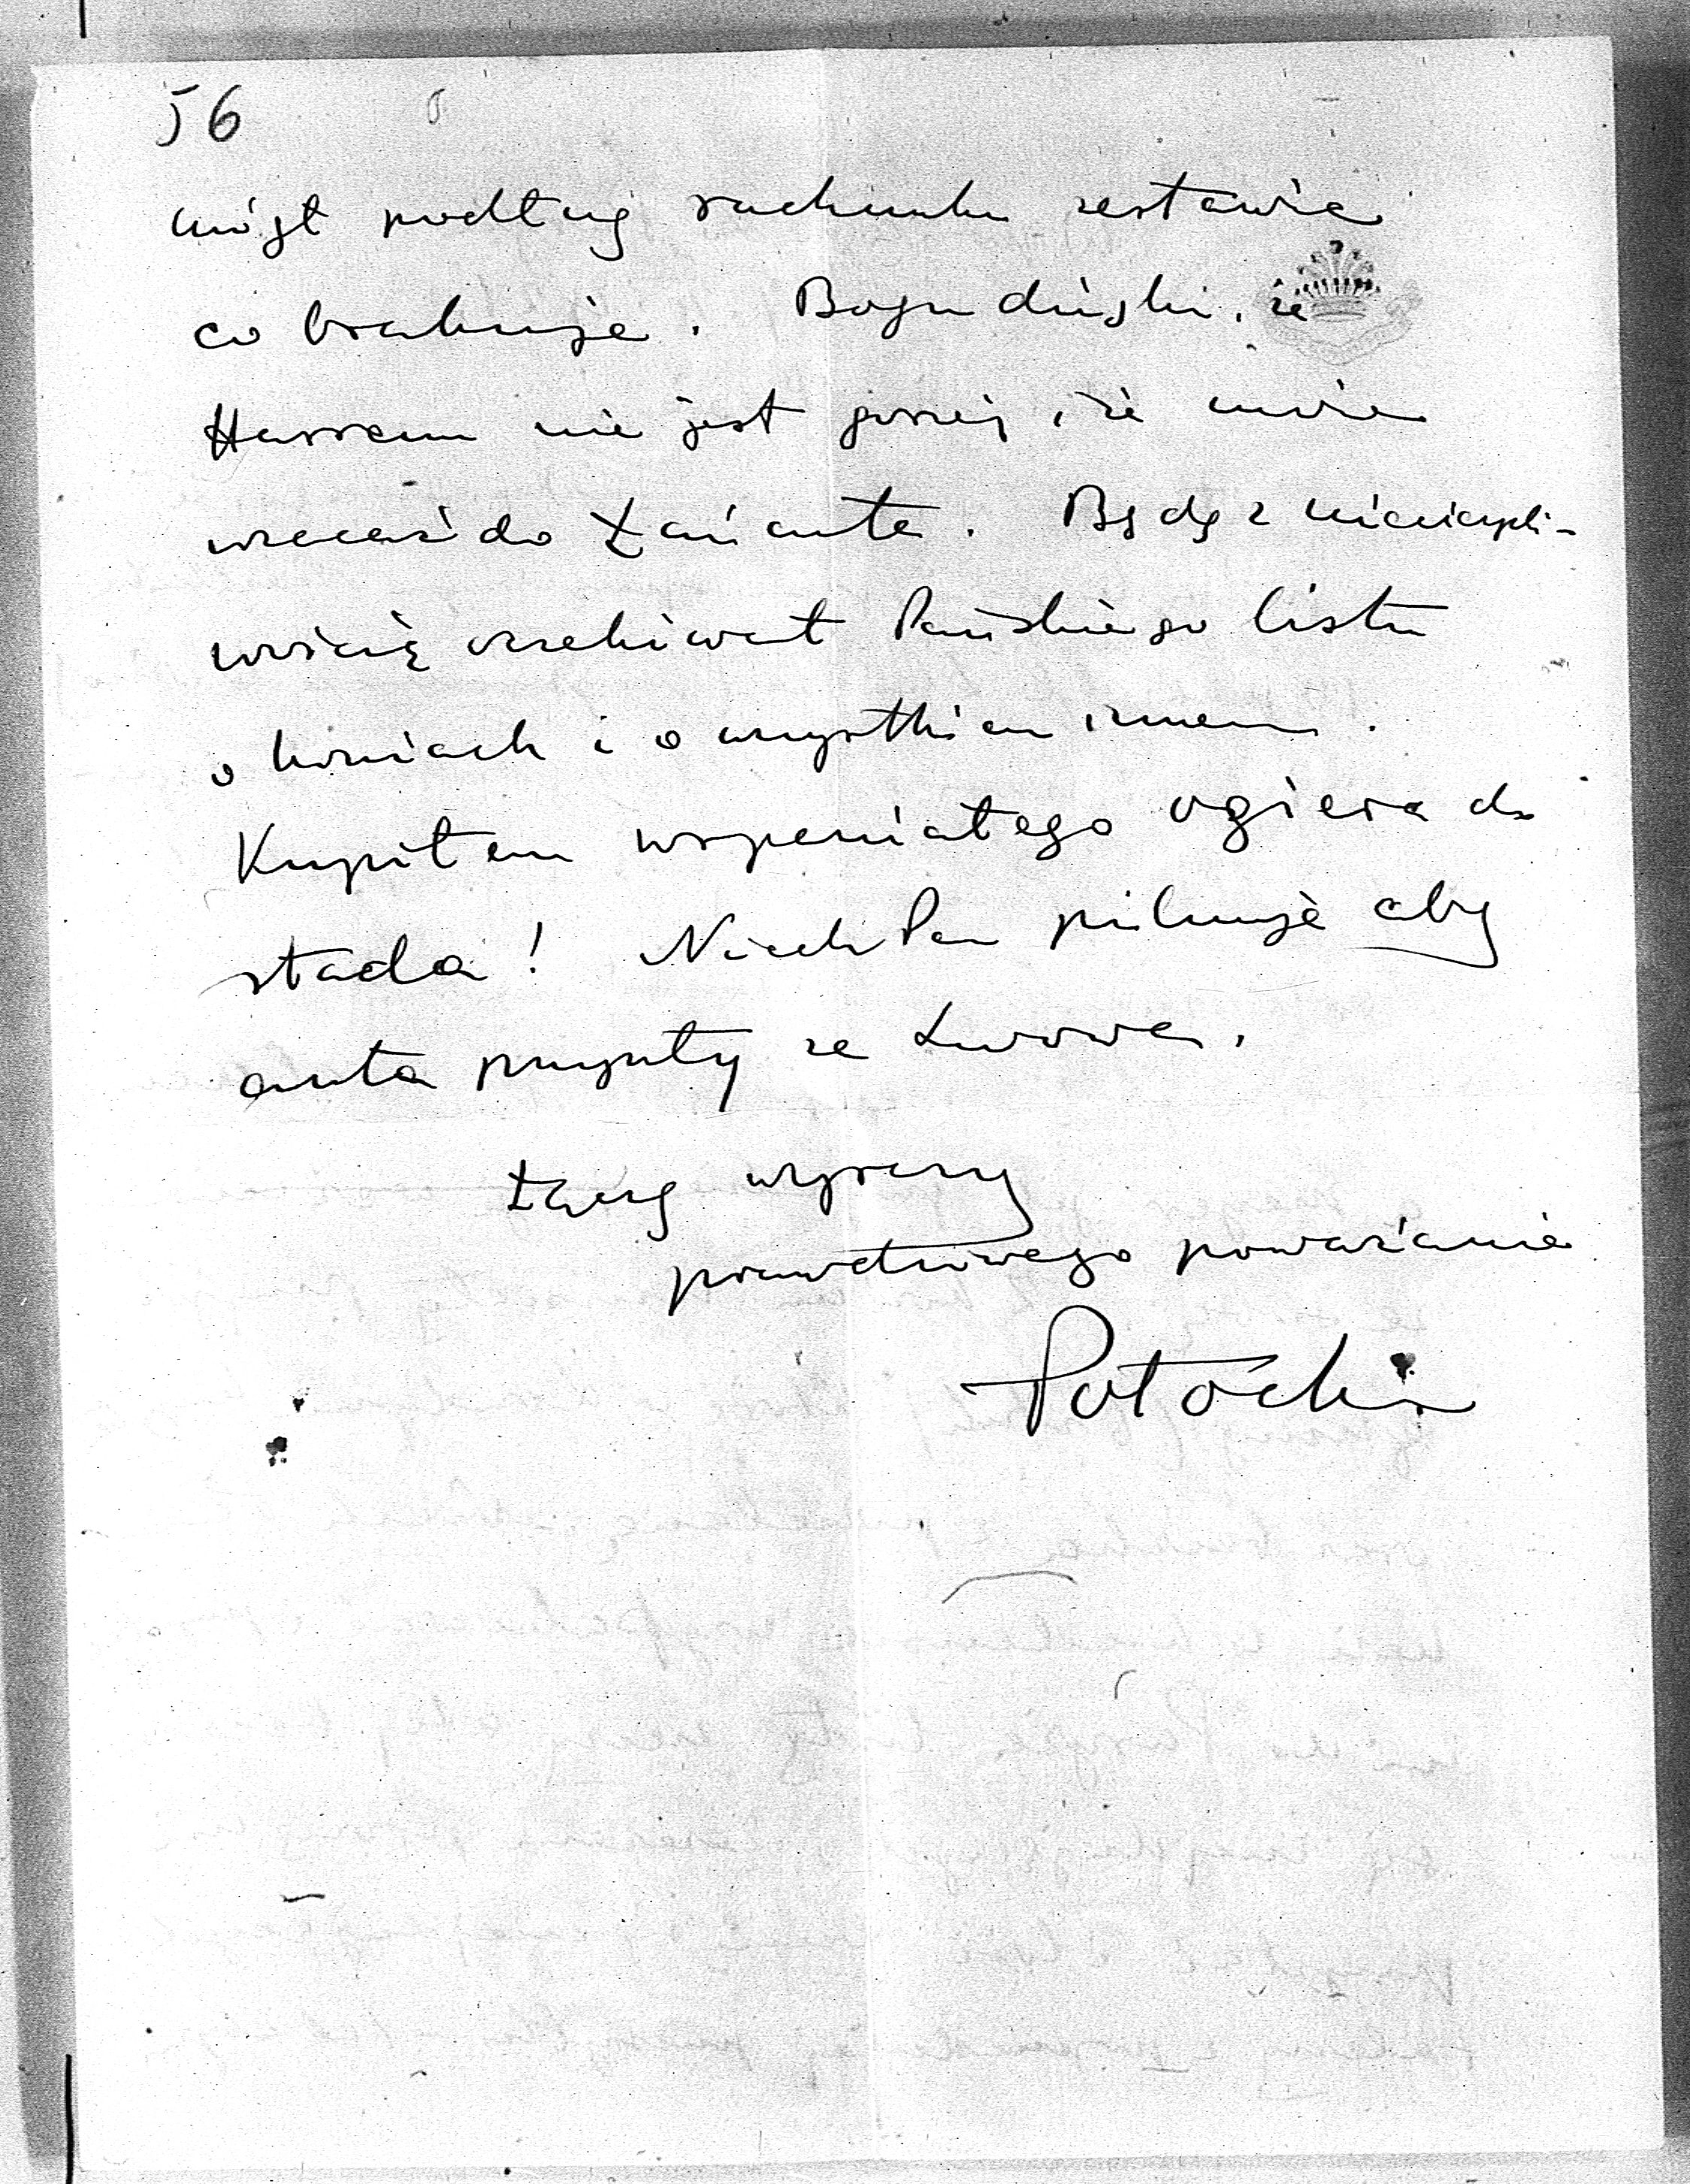 56
mógł podług rachunku zestawić
co brakuje. Bogu dzięki, że
Hassem nie jest gorzej, że może
wracać do Łańcuta. Będę z niecierpli-
wością oczekiwał Pańskiego listu
o koniach i o wszystkiem innem.
Kupiłem wspaniałego ogiera do
stada! Niech Pan pilnuje aby
auta przyszły ze Lwowa.
Łączę wyrazy
prawdziwego poważania
Potocki